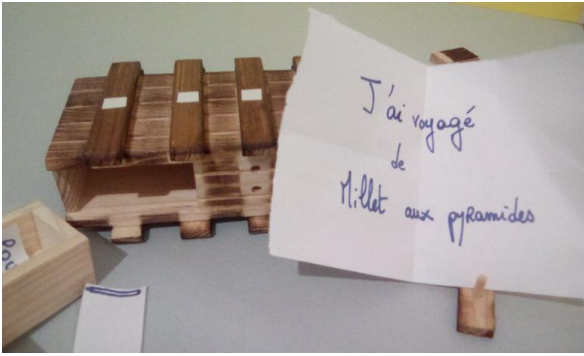 J'ai voyagé
de
Millet aux pyramides